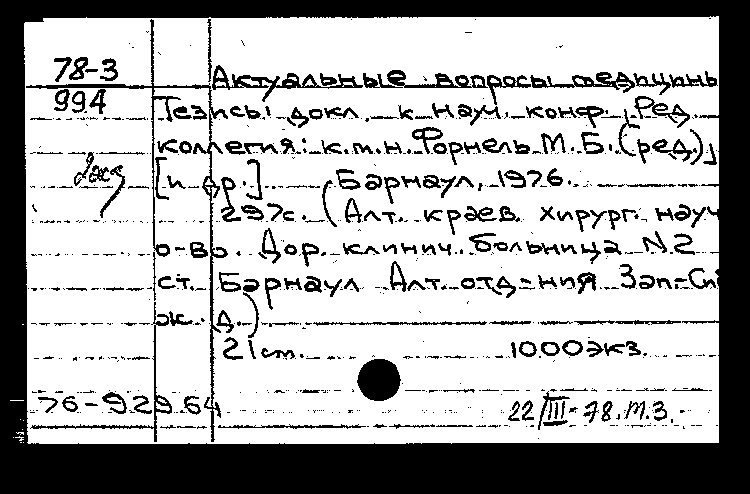 78-3
994
Актуальные вопросы медицины
Тезисы докл. к науч. конф. Ред.
коллегия: к.м.н. Форнель М.Б. (ред.)
[и др.] Барнаул, 1976.
297с. (Алт. краев. хирург. науч
о-во. Дор. клинич. больница N2
ст. Барнаул Алт. отд-ния Зап-Си
ж. д.)
21см. 1000экз.
76-92964
22/III-78. М.З.